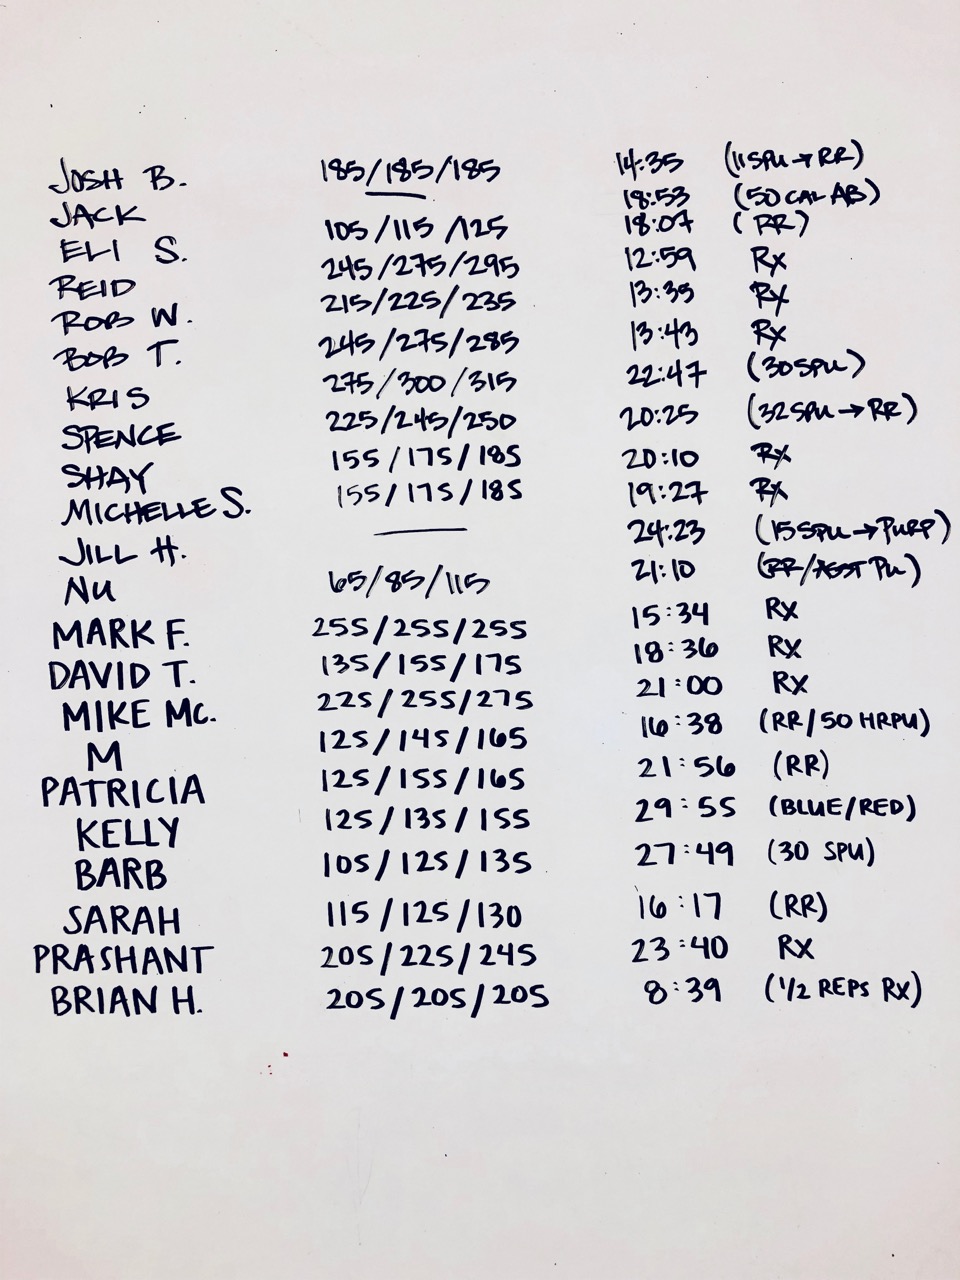 JOSH B. 185/185/185 14:35 (11 SPU→RR)
JACK — 18:53 (50 CAL AB)
ELI S. 105/115/125 18:07 (RR)
REID 245/275/295 12:59 Rx
ROB W. 215/225/235 13:35 Rx
BOB T. 245/275/285 13:43 Rx
KRIS 275/300/315 22:47 (30 SPU)
SPENCE 225/245/250 20:25 (32 SPU→RR)
SHAY 155/175/185 20:10 Rx
MICHELLE S. 155/175/185 19:27 Rx
JILL H. — 24:23 (15 SPU→PURP)
NU 65/85/115 21:10 (RR/ASST PU)
MARK F. 255/255/255 15:34 Rx
DAVID T. 135/155/175 18:36 Rx
MIKE MC. 225/255/275 21:00 Rx
M 125/145/165 16:38 (RR/50 HRPU)
PATRICIA 125/155/165 21:56 (RR)
KELLY 125/135/155 29:55 (BLUE/RED)
BARB 105/125/135 27:49 (30 SPU)
SARAH 115/125/130 16:17 (RR)
PRASHANT 205/225/245 23:40 Rx
BRIAN H. 205/205/205 8:39 (1/2 REPS Rx)